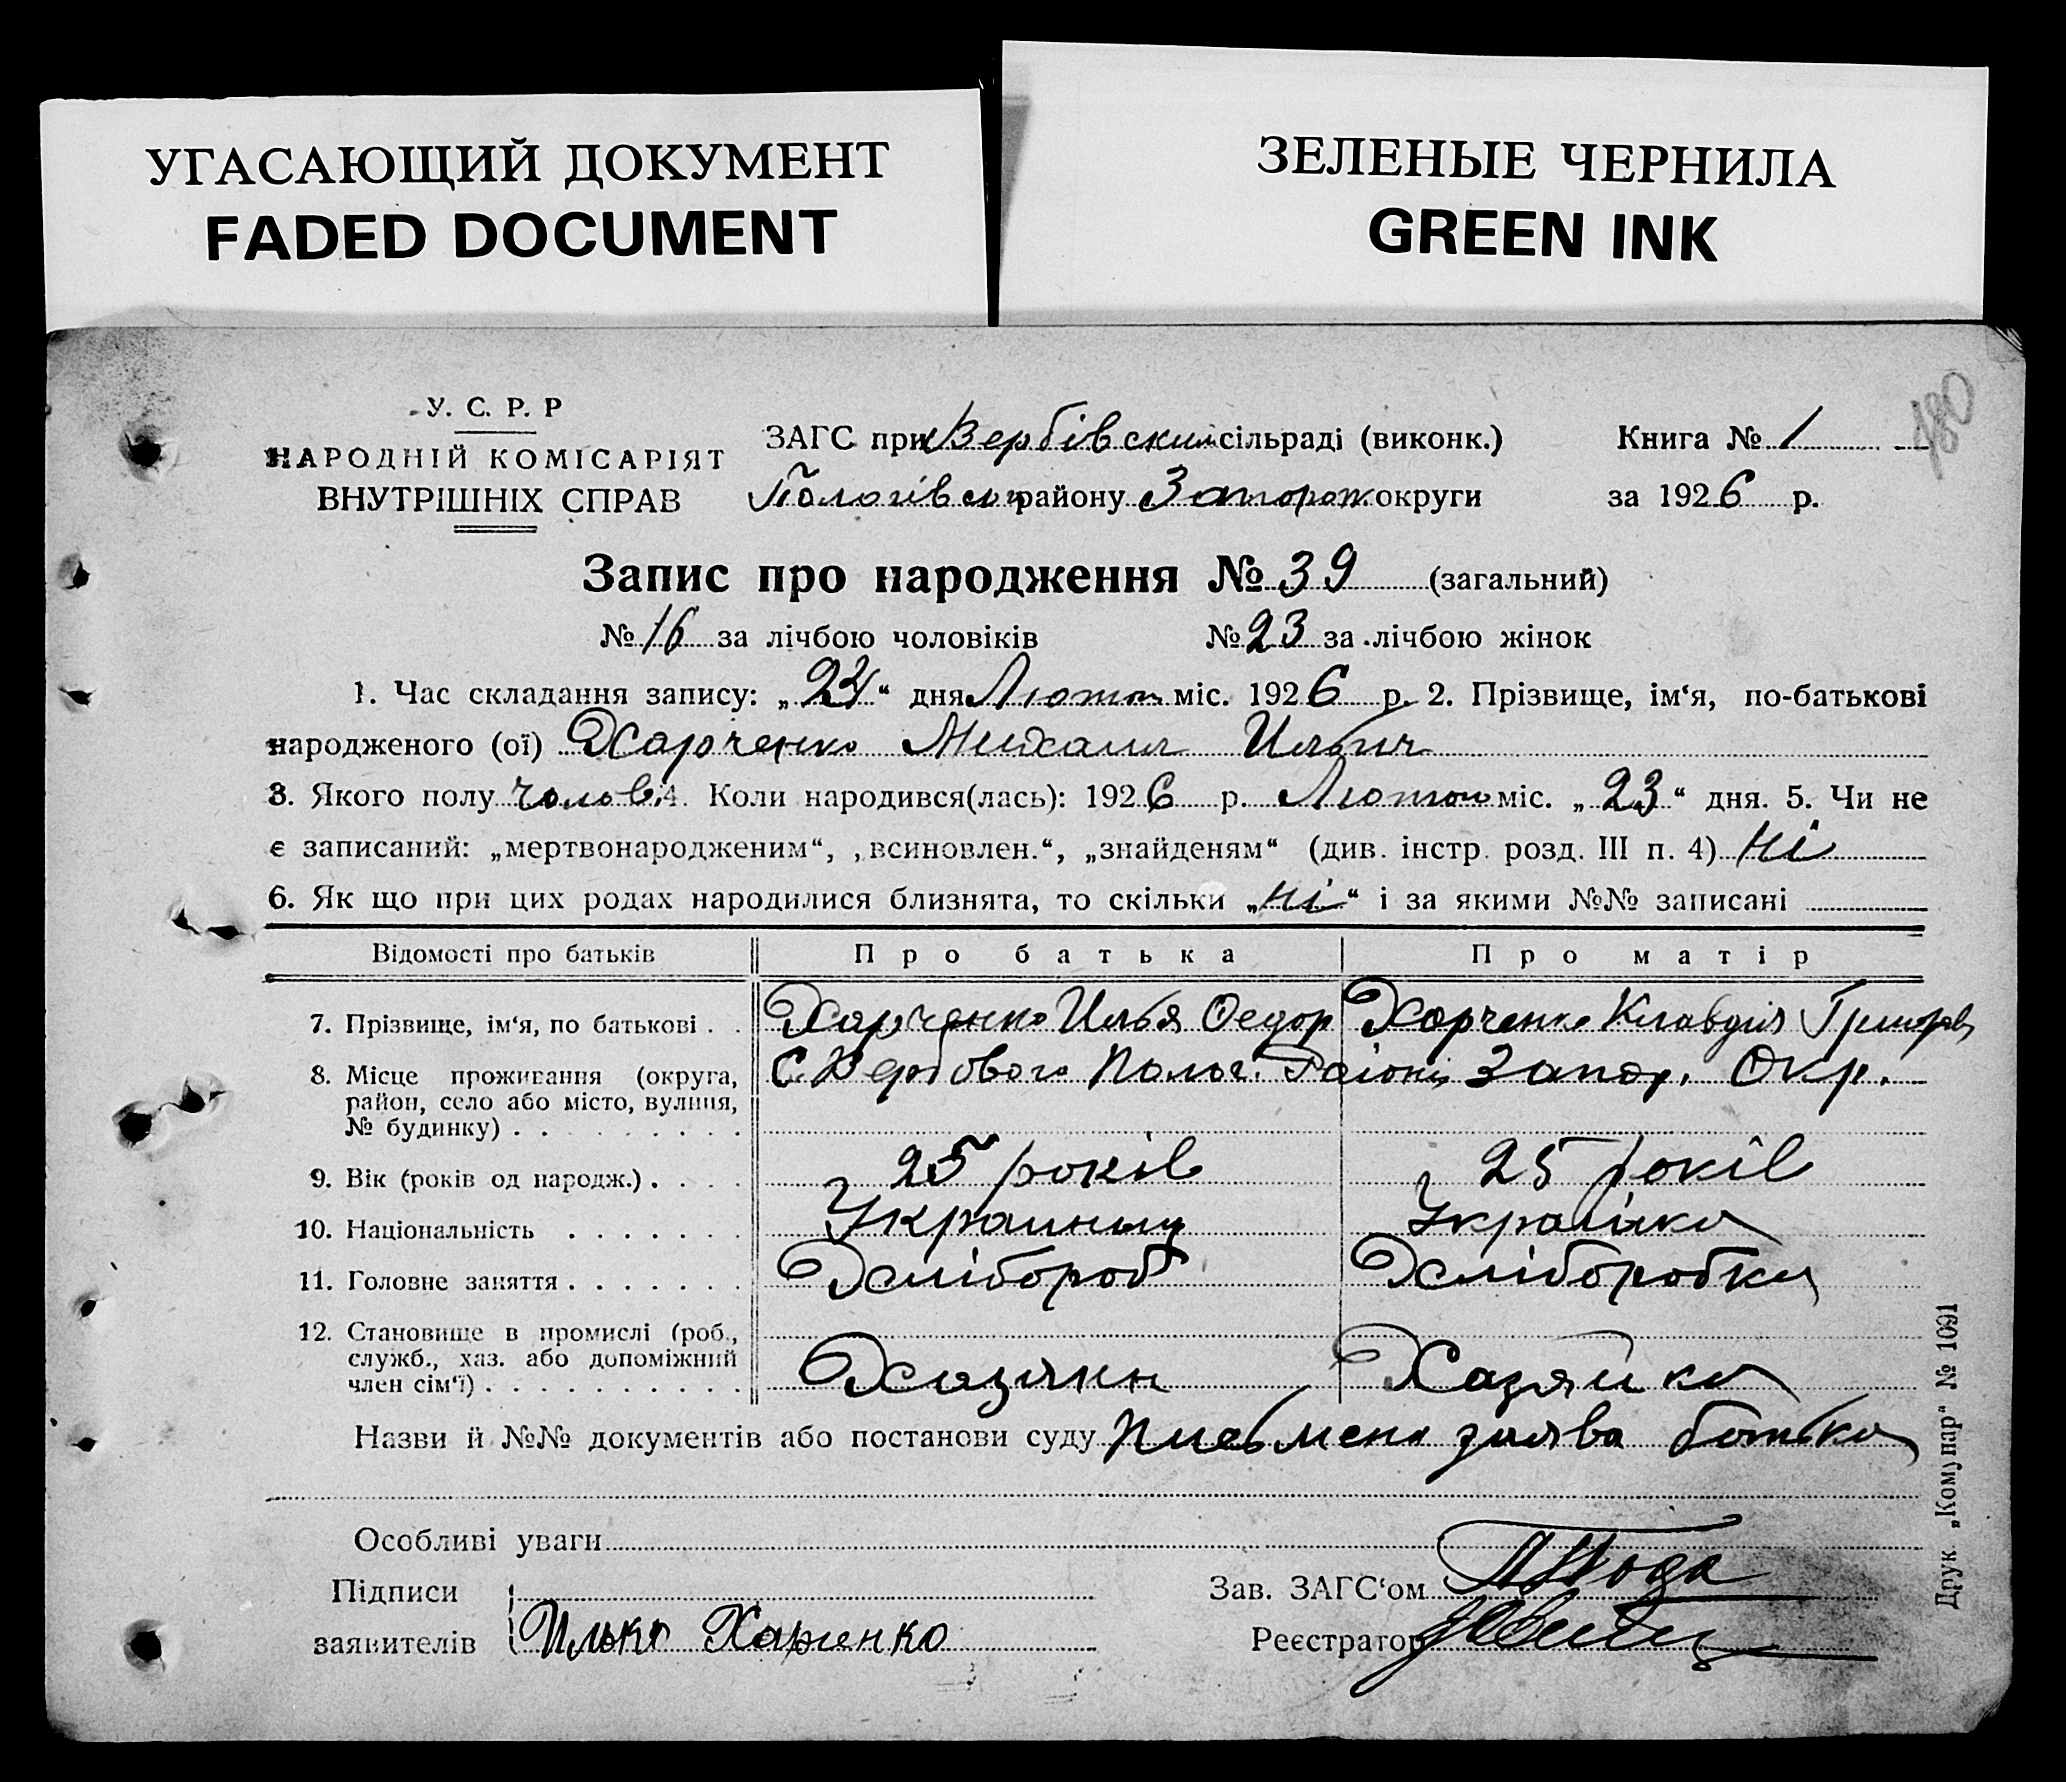 УГАСАЮЩИЙ ДОКУМЕНТ
FADED DOCUMENT
ЗЕЛЕНЫЕ ЧЕРНИЛА
GREEN INK
180
У. С. Р. Р
НАРОДНІЙ КОМІСАРІЯТ
ВНУТРІШНІХ СПРАВ
ЗАГС при Вербівській сільраді (виконк.) Книга № 1
Пологівськ району Запорож округи за 1926 р.
Запис про народження № 39 (загальний)
№ 16 за лічбою чоловіків № 23 за лічбою жінок
1. Час складання запису: „24“ дня Лютого міс. 1926 р. 2. Прізвище, ім‘я, по-батькові
народженого (ої) Харченко Михаил Ильич
3. Якого полу чолов. 4. Коли народився(лась): 1926 р. Лютого міс. „23“ дня. 5. Чи не
є записаний: „мертвонародженим“, „всиновлен.“, „знайденям“ (див. інстр. розд. III п. 4) Ні
6. Як що при цих родах народилися близнята, то скільки „Ні“ і за якими №№ записані
Відомості про батьків Про батька Про матір
7. Прізвище, ім‘я, по батькові . . Харченко Илья Федор Харченко Клавдия Григоров
8. Місце проживання (округа, С. Вербового Полог. Району Запор. Окр.
район, село або місто, вулиця,
№ будинку) . . . . . . . . .
9. Вік (років од народж.) . . . . 25 років 25 років
10. Національність . . . . . . . Украинец Українка
11. Головне заняття . . . . . . . Хлібороб Хлiборобка
12. Становище в промислі (роб.,
служб., хаз. або допоміжний
член сім‘ї) . . . . . . . . . . Хазяин Хазяйка
Назви й №№ документів або постанови суду Письмена заява батька
Особливі уваги
Підписи Зав. ЗАГС‘ом
заявителів Илько Харченко Реєстратор
Друк. „Комунар“ № 1091